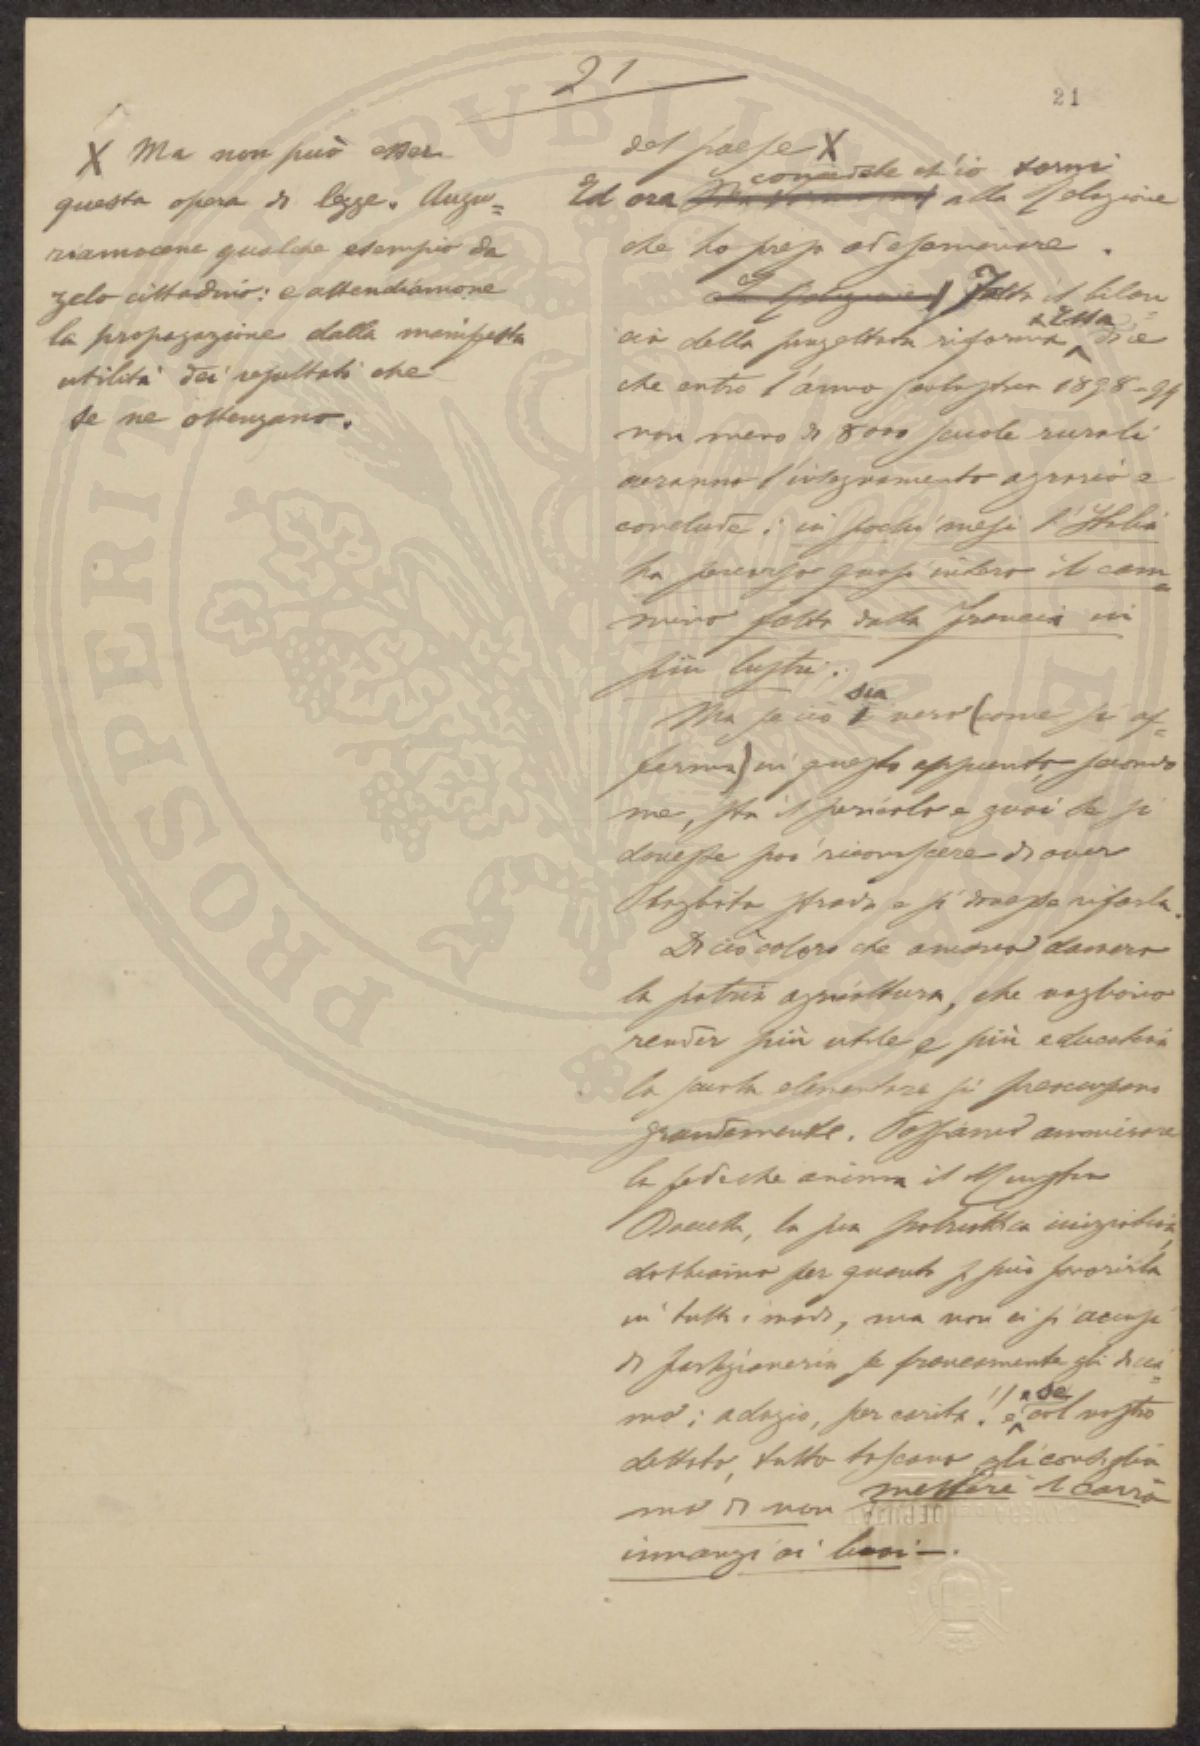 21
21
X Ma non può esser
questa opera di legge. Augu=
riamocene qualche esempio da
zelo cittadino: e attendiamone
la propagazione dalla manifesta
utilità dei resultati che
se ne ottengano.
del paese X
concedete ch'io torni
Ed ora alla Relazione
che ho preso ad esaminare.
La Relazione Fatto il bilan=
cio della progettata riforma Essa dice
che entro l'anno scolastico 1898-99
non meno di 8000 scuole rurali
avranno l'insegnamento agrario e
conclude: in pochi mesi l'Italia
ha percorso quasi intero il cam=
mino fatto dalla Francia in
più lustri.
Ma se ciò sia vero (come si af=
ferma) in questo appunto, secondo
me, sta il pericolo e guai se si
dovesse poi riconoscere di aver
sbagliata strada e si dovesse rifarla.
Di ciò coloro che amano davvero
la patria agricoltura, che vogliono
render più utile e più educativa
la scuola elementare si preoccupano
grandemente. Possiamo ammirare
la fede che anima il Ministro
Baccelli, la sua patriottica iniziativa,
dobbiamo per quanto si può favorirla
in tutti i modi, ma non ci si accusi
di partigianeria se francamente gli dicia=
mo: adagio, per carità! e se col nostro
dettato, tutto toscano gli consiglia
mo di non mettere il carro
innanzi ai buoi—.
PROSPERITAS PUBLICA